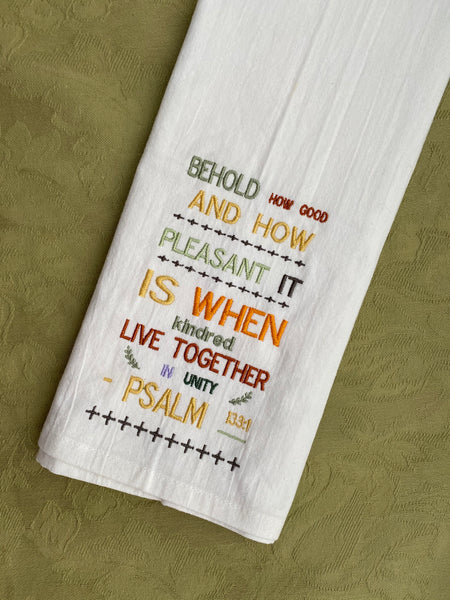 BEHOLD HOW GOOD
AND HOW
PLEASANT IT
IS WHEN
kindred
LIVE TOGETHER
IN UNITY
- PSALM 133:1